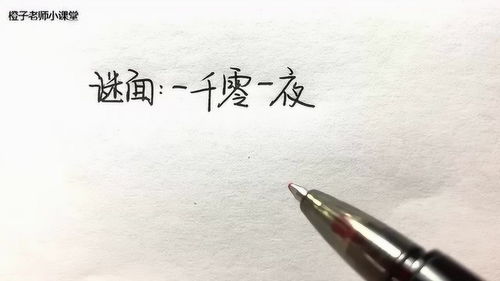 橙子老师小课堂
谜面:一千零一夜